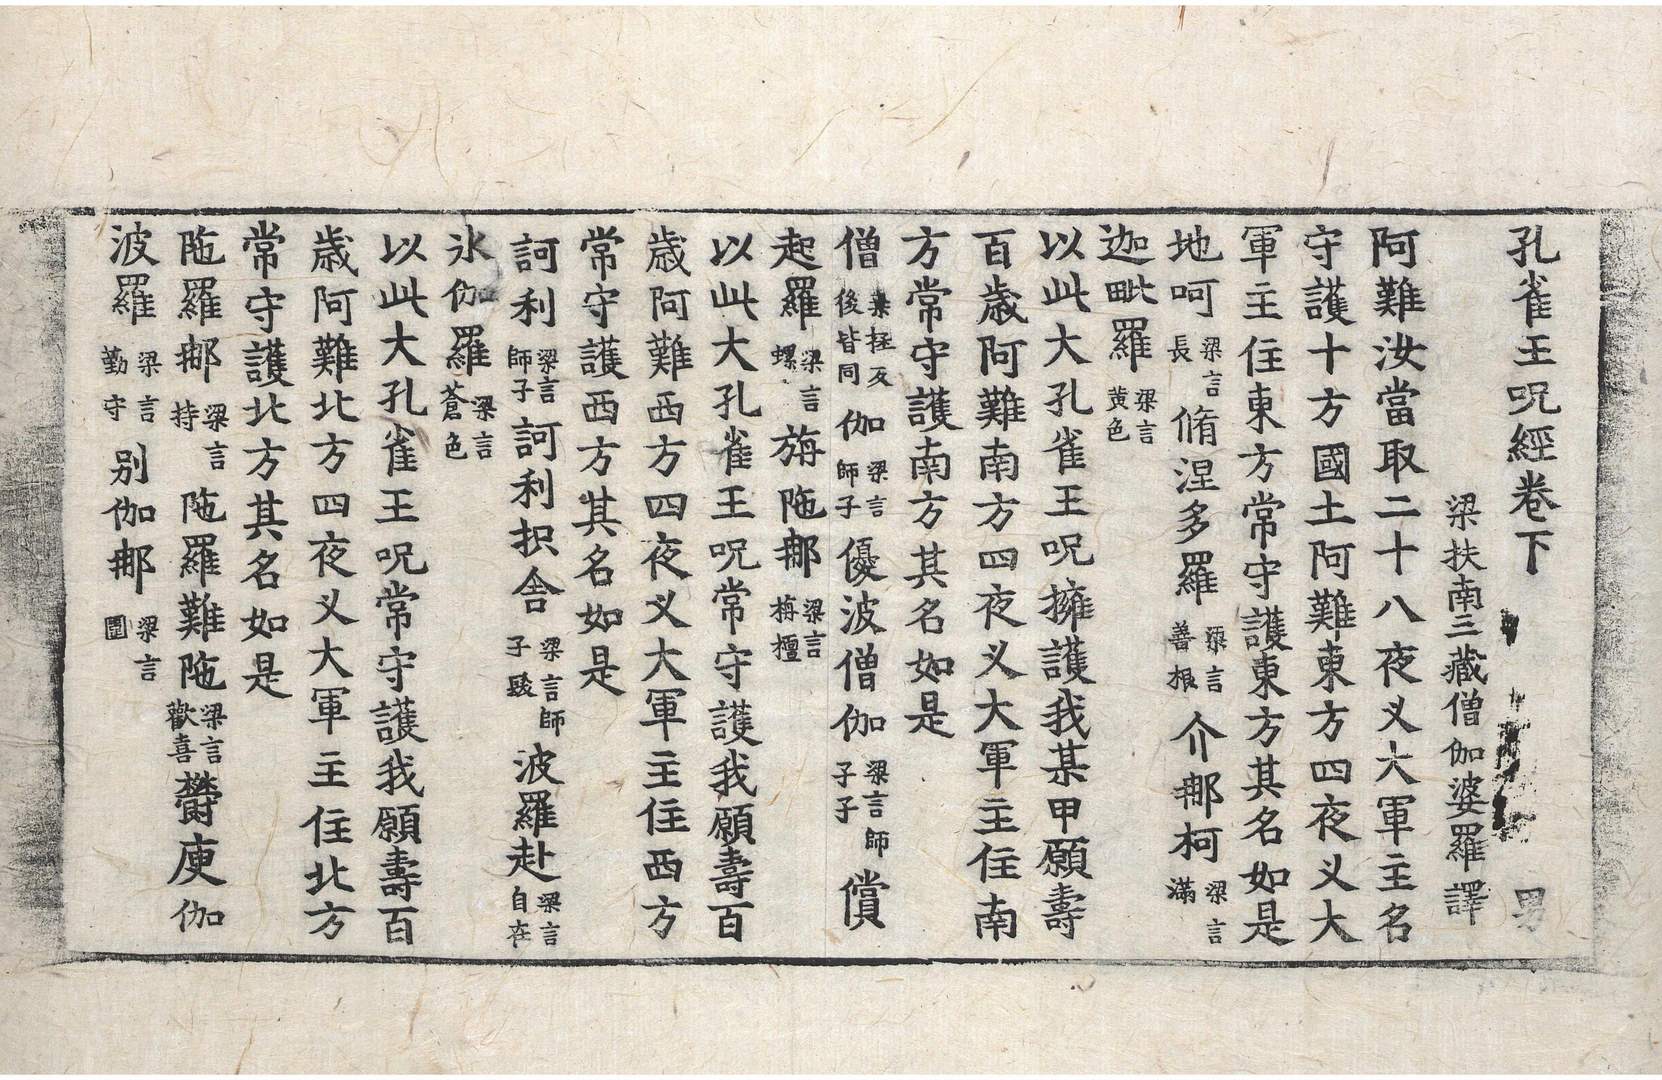 孔雀王呪經卷下 男
梁扶南三藏僧伽婆羅譯
阿難汝當取二十八夜叉大軍主名
守護十方國土阿難東方四夜叉大
軍主住東方常守護東方其名如是
地呵梁言長脩涅多羅梁言善根介那柯梁言滿
迦毗羅梁言黃色
以此大孔雀王呪擁護我某甲願壽
百歲阿難南方四夜叉大軍主住南
方常守護南方其名如是
僧桒拯反後皆同伽梁言師子優波僧伽梁言師子子償
起羅梁言螺旃陁那梁言栴檀
以此大孔雀王呪常守護我願壽百
歲阿難西方四夜叉大軍主住西方
常守護西方其名如是
訶利梁言師子訶利枳舍梁言師子髮波羅赴梁言自在
氷伽羅梁言蒼色
以此大孔雀王呪常守護我願壽百
歲阿難北方四夜叉大軍主住北方
常守護北方其名如是
陁羅那梁言持陁羅難陁梁言歡喜欝庾伽
波羅梁言勤守別伽那梁言圍